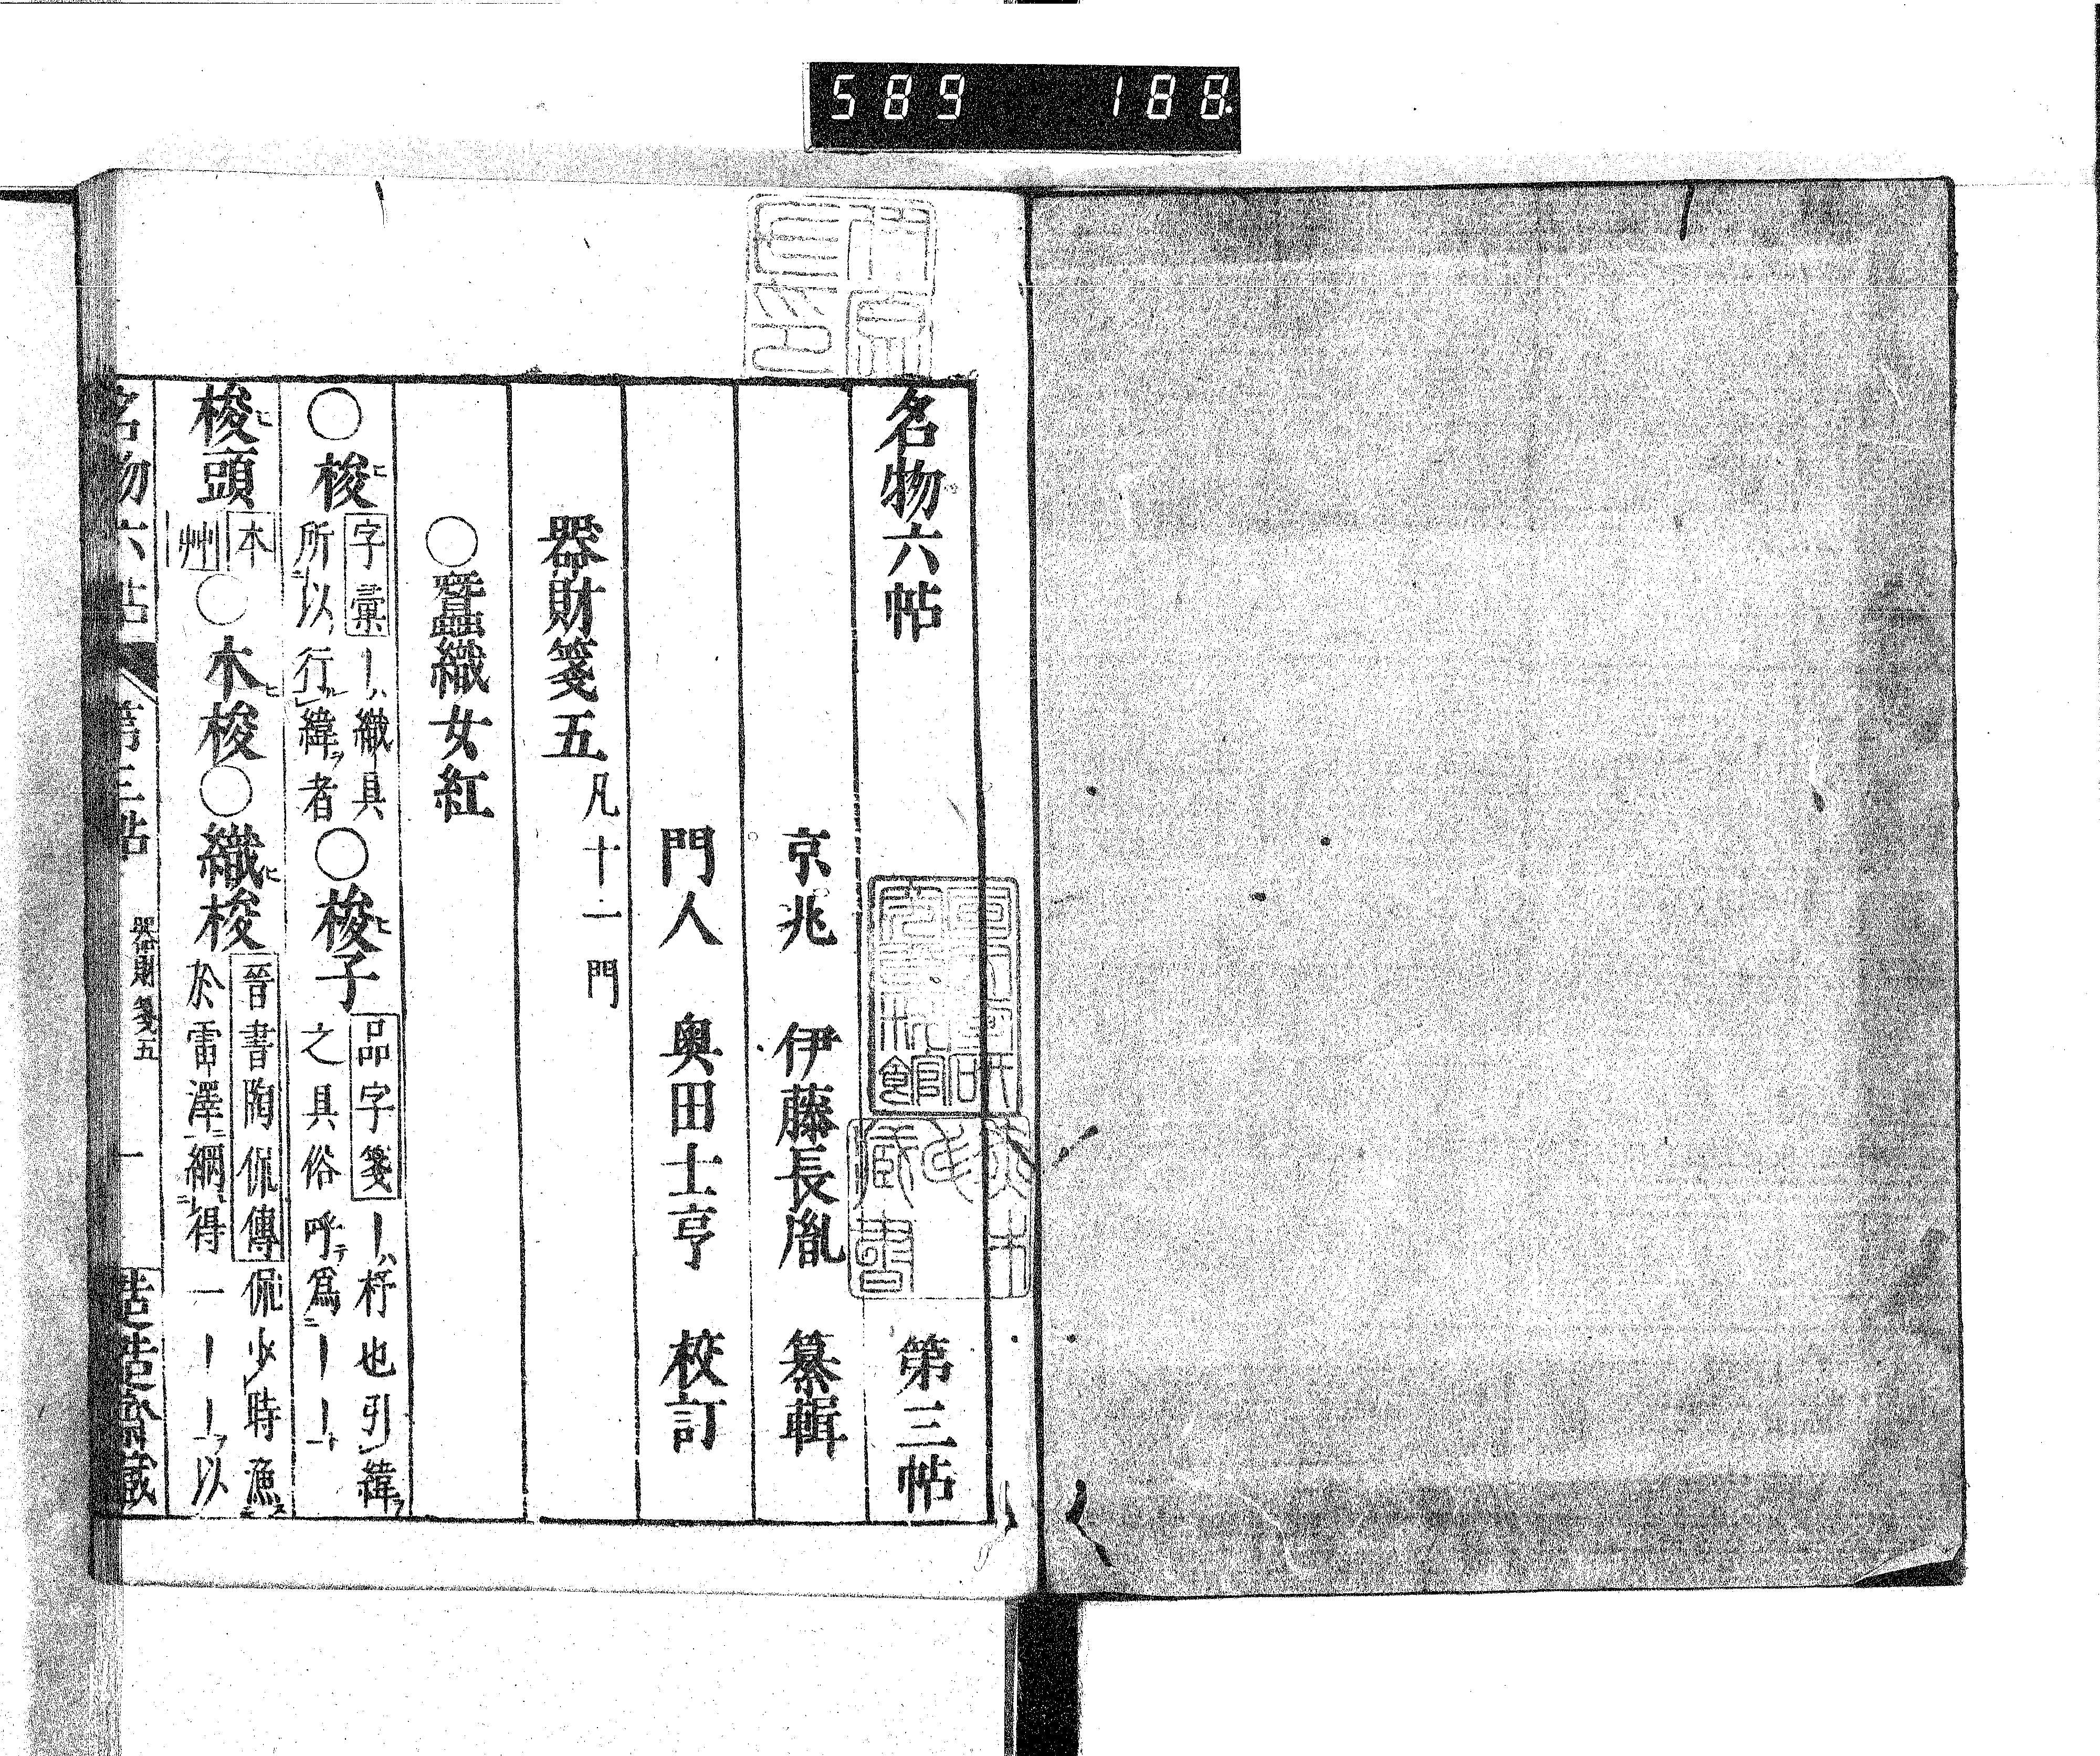 589 188
名物六帖 第三帖
京兆 伊藤長胤 纂輯
門人 奥田士亨 校訂
器財箋五 凡十一門
○蠶織女紅
○梭 ヒ 字彙 ｜ハ織具
所以行ル緯ヲ者
○梭子 ヒ 品字箋 ｜ハ杼也引緯ヲ
之具俗呼テ爲ニ｜｜ト
梭頭 ヒ 本艸
○木梭 ヒ
○織梭 ヒ 晉書陶侃傳 侃少時漁ス
於雷澤ニ網得一｜｜ヲ以
名物六帖 第三帖 器財箋五 一
藏